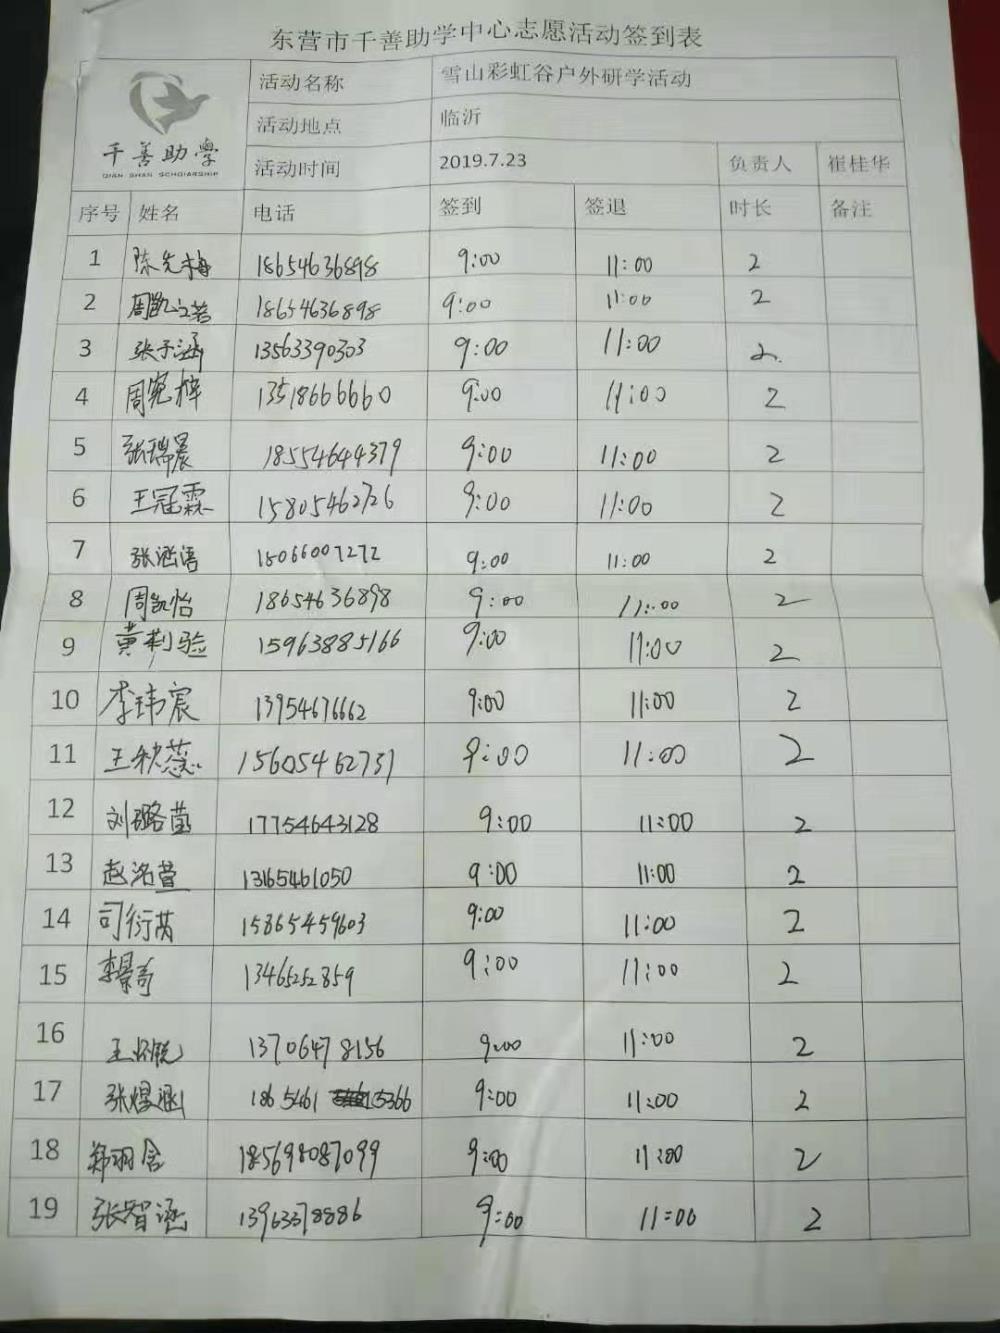 东营市千善助学中心志愿活动签到表
千善助学
QIAN SHAN SCHOLARSHIP
活动名称 雪山彩虹谷户外研学活动
活动地点 临沂
活动时间 2019.7.23 负责人 崔桂华
序号 姓名 电话 签到 签退 时长 备注
1 陈先梅 18654636898 9:00 11:00 2
2 18654636898 9:00 11:00 2
3 张子涵 13563390303 9:00 11:00 2
4 周宪梓 13518666660 9:00 11:00 2
5 张瑞晨 18554644379 9:00 11:00 2
6 王冠霖 15805462726 9:00 11:00 2
7 张涵语 18066007272 9:00 11:00 2
8 周凯怡 18654636898 9:00 11:00 2
9 黄荆验 15963885166 9:00 11:00 2
10 李玮宸 13954676662 9:00 11:00 2
11 王秋蕊 15605462737 9:00 11:00 2
12 刘璐萱 17754643128 9:00 11:00 2
13 赵洺萱 13165461050 9:00 11:00 2
14 司衍芮 15865459603 9:00 11:00 2
15 李景奇 13465252859 9:00 11:00 2
16 13706478156 9:00 11:00 2
17 张煜涵 9:00 11:00 2
18 郑羽含 185698087099 9:00 11:00 2
19 张智涵 13963378886 9:00 11:00 2